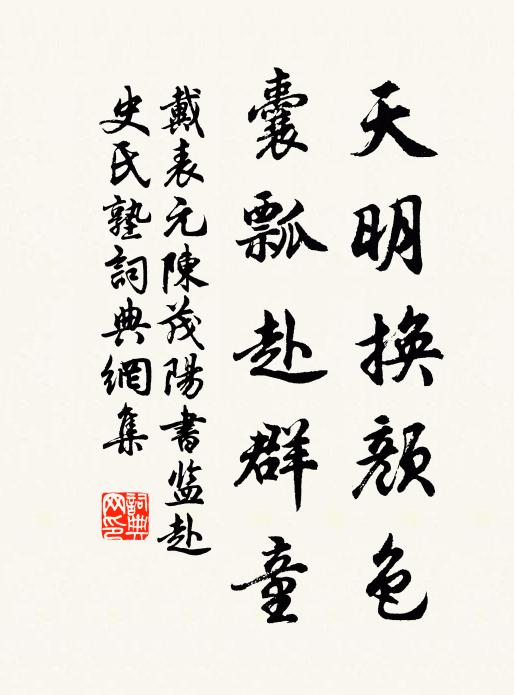 天明換顏色
囊瓢赴群童
戴表元陳茂陽書监赴
史氏塾詞典網集
詞典网印